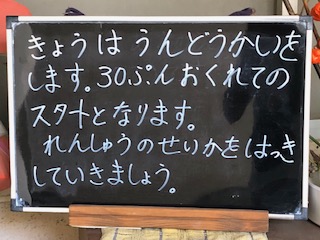 きょうは うんどうかいを
します。30ぷんおくれての
スタートとなります。
れんしゅうのせいかをはっき
していきましょう。